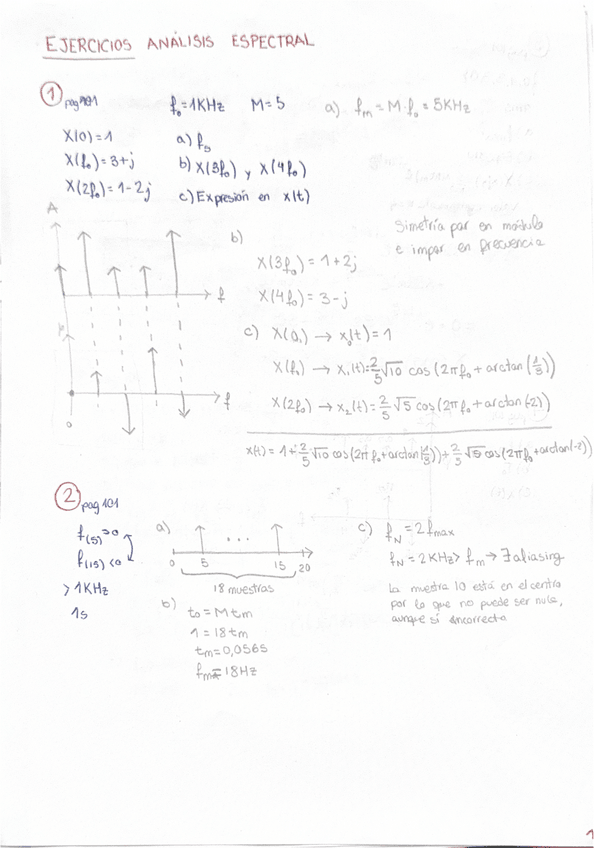 EJERCICIOS ANÁLISIS ESPECTRAL
1 pag 101 f₀=1KHz M=5 a) fₘ = M·f₀ = 5KHz
X(0)=1 a) fₛ
X(f₀)=3+j b) X(3f₀) y X(4f₀)
X(2f₀)=1-2j c) Expresión en x(t)
A
f
f
0
Simetría par en módulo
e impar en frecuencia
b)
X(3f₀) = 1+2j
X(4f₀) = 3-j
c) X(0) → x₀(t) = 1
X(f₀) → x₁(t)=2/5 √10 cos(2πf₀ + arctan(1/3))
X(2f₀) → x₂(t)=2/5 √5 cos(2πf₀ + arctan(-2))
x(t) = 1+2/5 √10 cos(2πf₀+arctan(1/3))+2/5 √5 cos(2πf₀+arctan(-2))
2 pag 101
f(5)>0
f(15)<0
>1KHz
1s
a)
...
0 5 15 20
18 muestras
b) t₀ = M tₘ
1 = 18 tₘ
tₘ=0,0565
fₘ=18Hz
c) f_N = 2 fmax
f_N = 2KHz > fₘ → ∃ aliasing
La muestra 10 está en el centro
por lo que no puede ser nula,
aunque sí incorrecta
1